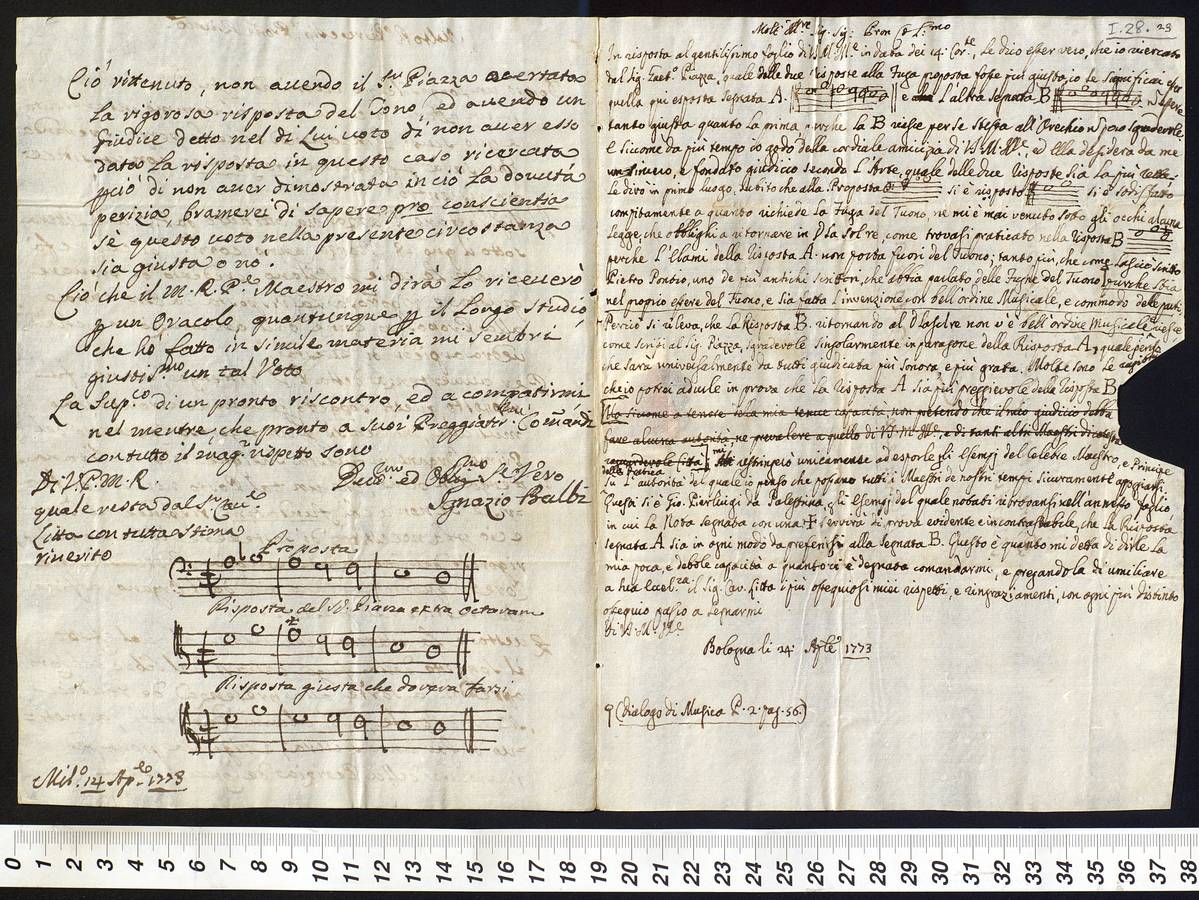 Ciò ritenuto, non avendo il Sr. Piazza accertata
La rigorosa risposta del Tono, ed avendo un
Giudice detto nel di Lui voto di non aver esso
data La risposta in questo caso ricercata
di non aver dimostrata in ciò La dovuta
perizia, bramerei di sapere pro conscientia
sè questo voto nella presente circostanza
sia giusto o nò.
Ciò che il M. R. Pe. Maestro mi dirà Lo riceverò
p un Oracolo, quantunque p il Longo studio,
che hò fatto in simile materia mi sembri
giustis.mo un tal Voto
La Supco. di un pronto riscontro, ed a compatirmi
nel mentre che pronto a suoi Preggiati.mi Comandi
con tutto il mag.r rispetto sono
Di V. P. M. R.
quale resta dal Sr. Cav.e
Litta con tutta stima
riverito
Devmo. ed Obligmo. Sr. Vero
Ignazio Balbi
Proposta
Risposta del Sr. Piazza extra octavam
Risposta giusta che doveva farsi
Mil.o 14 Ap.le 1773
I. 28. 23
Molt' Illre. Sig. Sig. Pron
In risposta al gentilissimo foglio di V. S. M. Ille in data dei 14 Corte., Le dico esser vero, che io ricercato
dal Sig. Gaet.o Piazza, quale delle due Risposte alla Fuga proposta fosse più giusta, io le significai che
quella qui esposta segnata A. e L'altra segnata B
tanto giusta quanto la prima, perche la B riesce per se stessa all'Orecchio
E siccome da più tempo io godo della cordiale amicizia di V. S. M. Ille, ed Ella desidera da me
un sincero, e fondato giudiccio secondo L'Arte, quale delle due Risposte sia la più
Le dirò in primo luogo, subito che alla Proposta si è risposto si è sodisfatto
compitamente a quanto richiede La Fuga del Tuono, ne mi è mai venuto sotto gli occhi alcuna
Legge, che obblighi a ritornare in D la sol re, come trovasi praticato nella Risposta B
perchè L'Elami della Risposta A. non porta fuori del Tuono; tanto più, che come lasciò scritto
Pietro Pontio, uno de più antichi Scrittori, che abbia parlato delle Fughe del Tuono purche stia
nel proprio essere del Tuono, e sia fatta L'invenzione con bell'ordine Musicale, e commodo delle parti.
Perciò si rileva, che la Risposta B. ritornando al D la sol re non v'è bell'ordine Musicale riesce
come scrissi al Sig. Piazza, sgradevole singolarmente in paragone della Risposta A, quale penso
che sarà universalmente da tutti giudicata più sonora e più grata. Molte sono le
che io potrei adurle in prova che La Risposta A sia più preggievole della Risposta B
Ma siccome a tenere della mia tenue capacità, non pretendo che il mio giudicio debba
fare alcuna autorità, ne prevalere a quello di V. S. M. Ille, e di tanti altri Maestri di cotesta
ragguardevole Città mi restringerò unicamente ad esporle gli Esempj del Celebre Maestro, e Principe
della Pratica
su L'autorità del quale io penso che possano tutti i Maestri de nostri tempi sicuramente appoggiarsi.
Questi si è Gio. Pierluigi da Palestrina, gli Esempj del quale notati ritrovansi nell'annesso foglio
in cui la Nota segnata con una + servirà di prova evidente e incontrastabile, che La Risposta
segnata A sia in ogni modo da preferirsi alla segnata B. Questo è quanto mi detta di dirle La
mia poca, e debole capacità a quanto si è degnata comandarmi, e pregandola di umiliare
il Sig. Cav. Litta i più ossequiosi miei rispetti, e ringraziamenti, con ogni più distinto
ossequio passo a segnarmi
Di V. S. M. Ille
Bologna li 24. Aprle 1773
(Dialogo di Musica P. 2. pag. 56.)